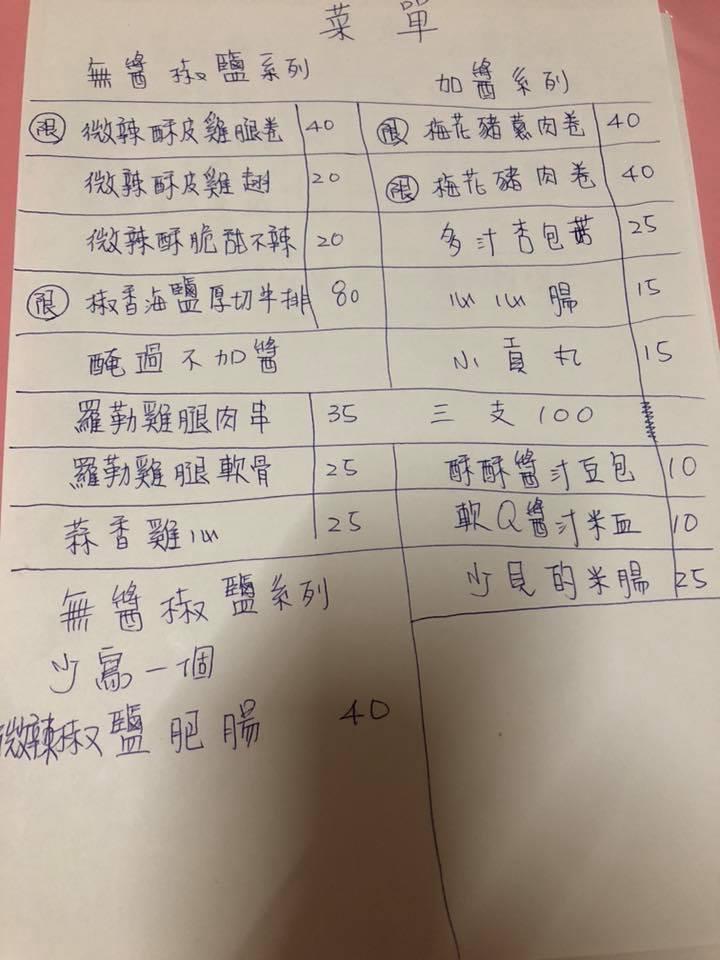 菜單
無醬椒鹽系列
限 微辣酥皮雞腿卷 40
微辣酥皮雞翅 20
微辣酥脆甜不辣 20
限 椒香海鹽厚切牛排 80
醃過不加醬
羅勒雞腿肉串 35 三支100
羅勒雞腿軟骨 25
蒜香雞心 25
無醬椒鹽系列
少寫一個
微辣椒鹽肥腸 40
加醬系列
限 梅花豬蔥肉卷 40
限 梅花豬肉卷 40
多汁杏包菇 25
心心腸 15
小貢丸 15
酥酥醬汁豆包 10
軟Q醬汁米血 10
少見的米腸 25